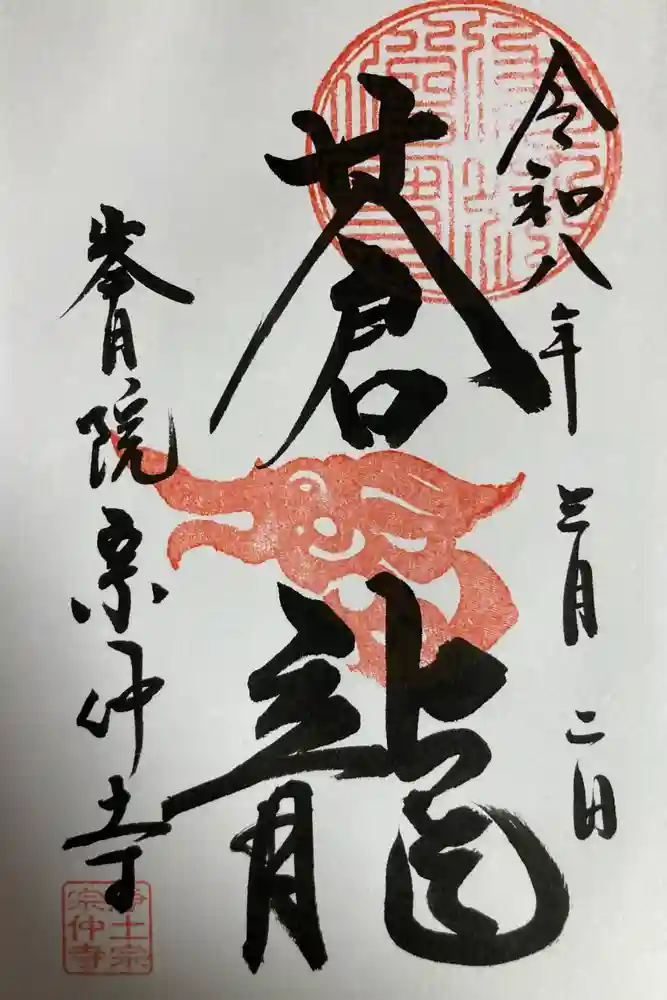 令和八年 三月 二日
蒼龍
峯月院 宗仲寺
浄土宗
宗仲寺